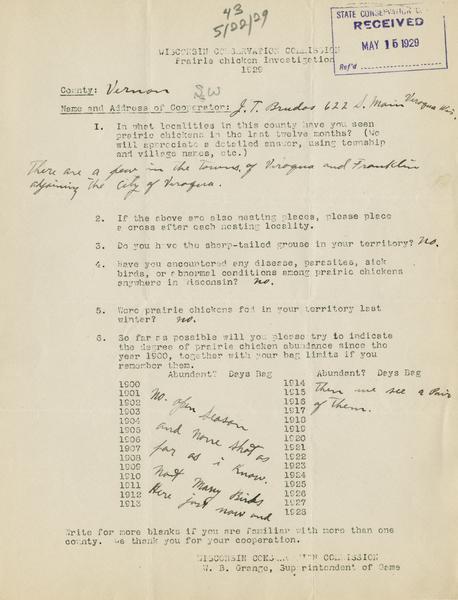 43
5/22/29
STATE CONSERVATION
RECEIVED
MAY 15 1929
Ref'd
WISCONSIN CONSERVATION COMMISSION
Prairie chicken Investigation
1929
County: Vernon
SW
Name and Address of Cooperator: J. T. Brudos 622 S. Main Viroqua Wis.
1. In what localities in this county have you seen
prairie chickens in the last twelve months? (We
will appreciate a detailed answer, using township
and village names, etc.)
There are a few in the towns of Viroqua and Franklin
adjoining the City of Viroqua.
2. If the above are also nesting places, please place
a cross after each nesting locality.
3. Do you have the sharp-tailed grouse in your territory? No.
4. Have you encountered any disease, parasites, sick
birds, or abnormal conditions among prairie chickens
anywhere in Wisconsin? no.
5. Were prairie chickens fed in your territory last
winter? no.
6. So far as possible will you please try to indicate
the degree of prairie chicken abundance since the
year 1900, together with your bag limits if you
remember them.
Abundant? Days Bag Abundant? Days Bag
1900 1914
1901 1915
1902 1916
1903 1917
1904 1918
1905 1919
1906 1920
1907 1921
1908 1922
1909 1923
1910 1924
1911 1925
1912 1926
1913 1927
1928
No. open season
and None shot as
far as i know.
Not Many Birds
Here just now and
then we see a Pair
of them.
Write for more blanks if you are familiar with more than one
county. We thank you for your cooperation.
WISCONSIN CONSERVATION COMMISSION
W. B. Grange, Superintendent of Game